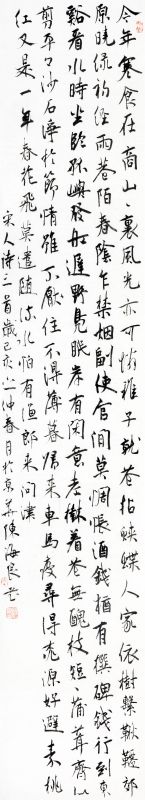 今年寒食在商山々裏風光亦可憐稚子就花拈蛺蝶人家依樹繫鞦韆郊
原曉綠初經雨巷陌春陰乍禁烟副使官閒莫惆悵酒錢猶有撰碑錢行到東
谿看水時坐臨孤嶼發舟遲野鳧眠岸有閑意老樹着花無醜枝短々蒲茸齊似
剪平々沙石淨於篩情雖不厭住不得薄暮歸來車馬疲尋得桃源好避秦桃
紅又是一年春花飛莫遣隨流水怕有漁郎來問津
宋人詩三首歲己亥之仲春月於京華陳海良書